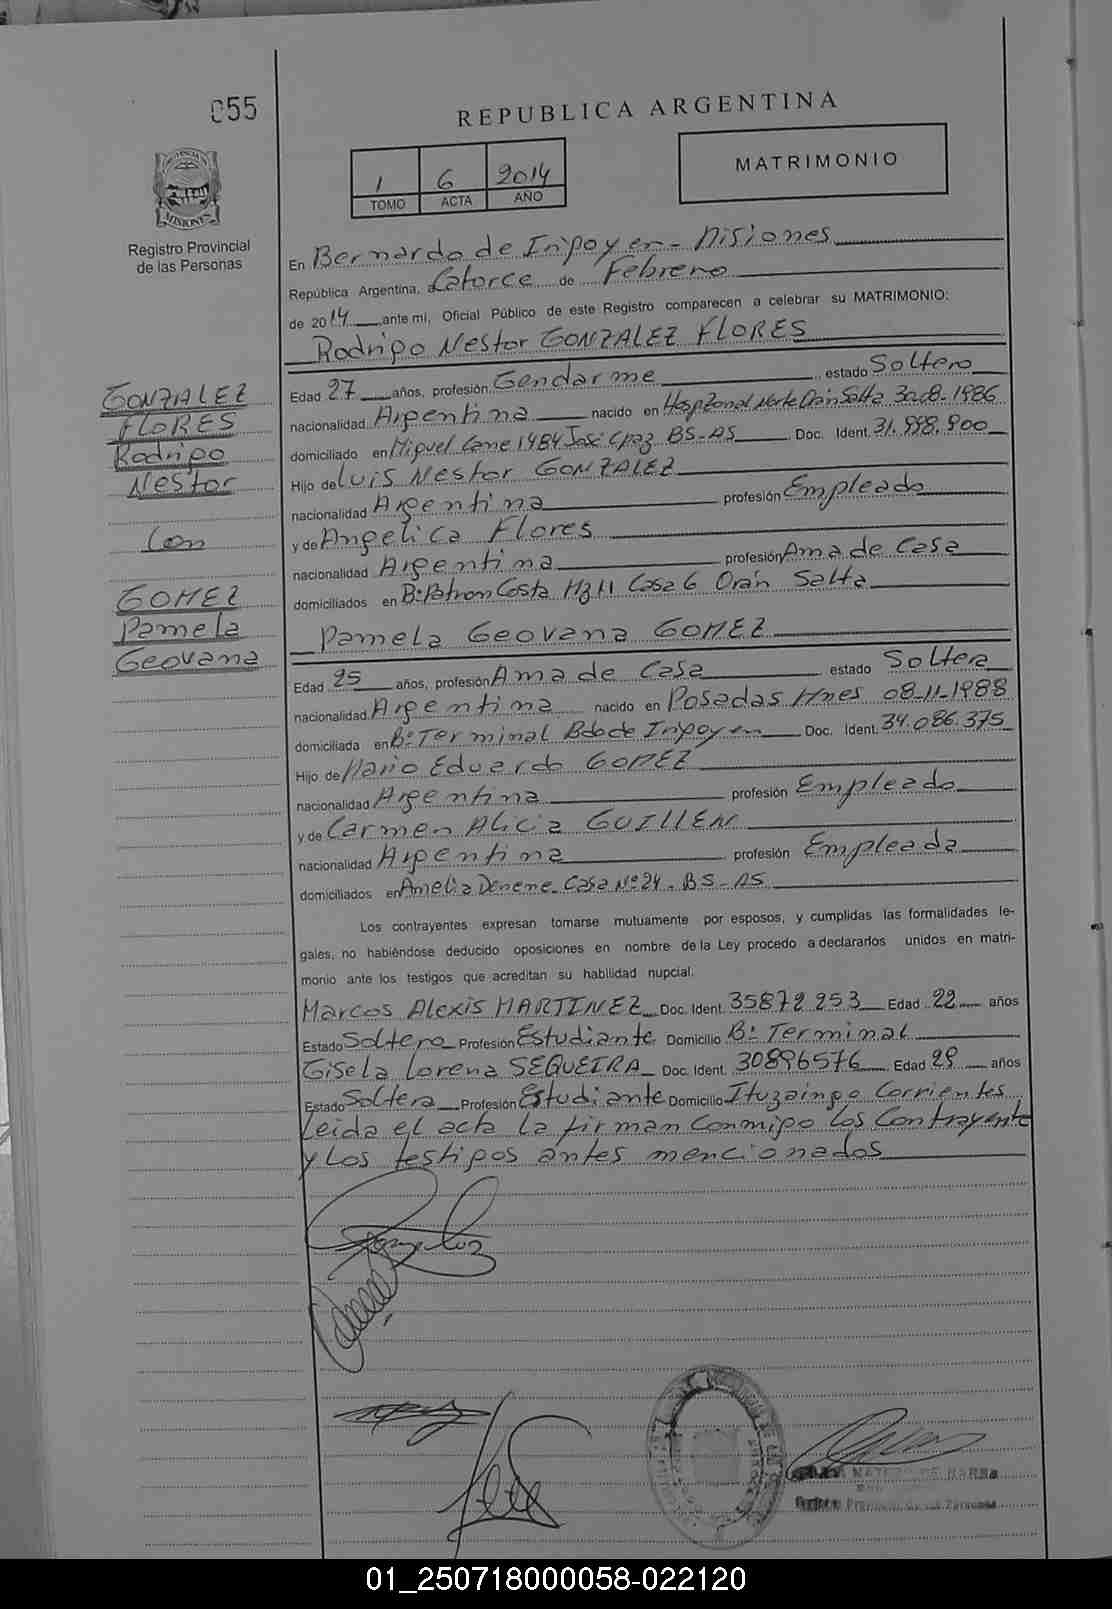 055
REPUBLICA ARGENTINA
1 6 2014
TOMO ACTA AÑO
MATRIMONIO
Registro Provincial
de las Personas
En Bernardo de Irigoyen - Misiones
República Argentina, a Catorce de Febrero
de 2014 ante mi, Oficial Público de este Registro comparecen a celebrar su MATRIMONIO:
Rodrigo Nestor GONZALEZ FLORES
Edad 27 años, profesión Gendarme estado Soltero
nacionalidad Argentina nacido en Hosp Zonal Norte Orán Salta 30-08-1986
domiciliado en Miguel Cane 1484 José C paz BS-AS Doc. Ident. 31.998.900
Hijo de Luis Nestor GONZALEZ
nacionalidad Argentina profesión Empleado
y de Angelica Flores
nacionalidad Argentina profesión Ama de Casa
domiciliados en Bº Patron Costa Mz 11 Casa 6 Orán Salta
Pamela Geovana GOMEZ
Edad 25 años, profesión Ama de Casa estado Soltera
nacionalidad Argentina nacido en Posadas Mnes 08-11-1988
domiciliada en Bº Terminal Bdo de Irigoyen Doc. Ident. 34.086.375
Hijo de Mario Eduardo GOMEZ
nacionalidad Argentina profesión Empleado
y de Carmen Alicia GUILLEN
nacionalidad Argentina profesión Empleada
domiciliados en Amelia Casa Nº 24. BS-AS
Los contrayentes expresan tomarse mutuamente por esposos, y cumplidas las formalidades le-
gales, no habiéndose deducido oposiciones en nombre de la Ley procedo a declararlos unidos en matri-
monio ante los testigos que acreditan su habilidad nupcial.
Marcos Alexis MARTINEZ Doc. Ident. 35872253 Edad 22 años
Estado Soltero Profesión Estudiante Domicilio Bº Terminal
Gisela Lorena SEQUEIRA Doc. Ident. 30896576 Edad 29 años
Estado Soltera Profesión Estudiante Domicilio Ituzaingo Corrientes
Leida el acta la firman Conmigo los Contrayente
y Los testigos antes mencionados
GONZALEZ
FLORES
Rodrigo
Nestor
Con
GOMEZ
Pamela
Geovana
01_250718000058-022120